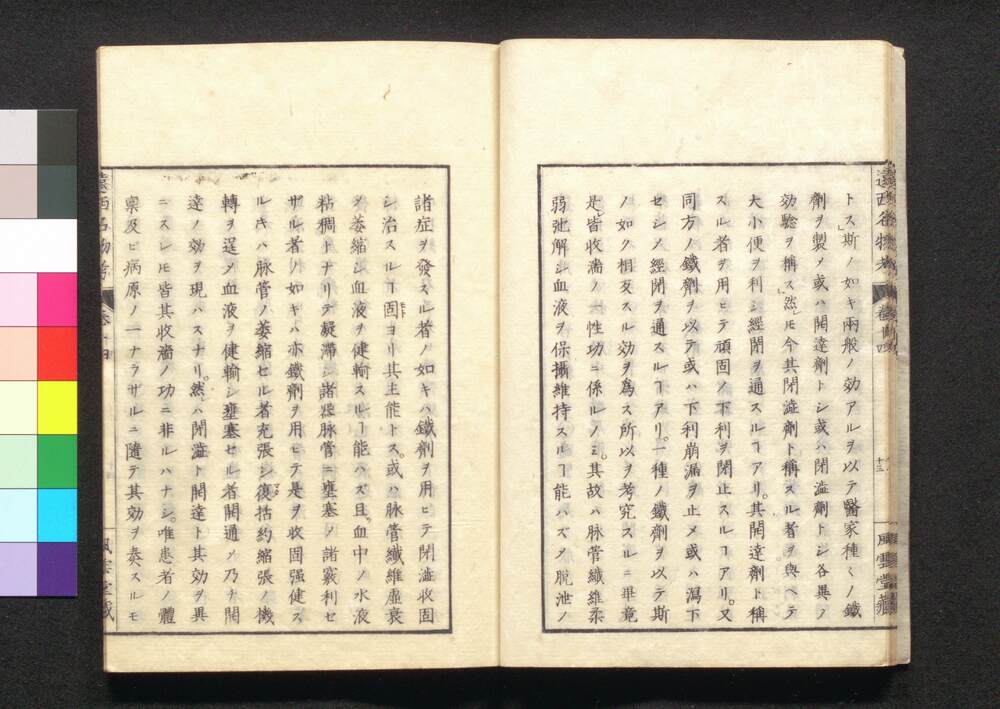 遠西名物考
卷十四
風雲堂藏
トス斯ノ如キ兩般ノ効アルヲ以テ醫家種〻ノ鐵
劑ヲ製メ或ハ開達劑トシ或ハ閉澁劑トシ各異ノ
効驗ヲ稱ス然ヒモ今其閉澁劑ト稱スル者ヲ與ヘテ
大小便ヲ利シ經閉ヲ通スルヿアリ其開達劑ト稱
スル者ヲ用ヒテ頑固ノ下利ヲ閉止スルヿアリ又
同方ノ鐵劑ヲ以テ或ハ下利崩漏ヲ止メ或ハ瀉下
セシメ經閉ヲ通スルヿアリ一種ノ鐵劑ヲ以テ斯
ノ如ク相反スル効ヲ爲ス所以ヲ考究スルニ畢竟
是皆收濇ノ一性功ニ係ルノミ其故ハ脉管纖維柔
弱弛解シ血液ヲ保攝維持スルヿ能ハズメ脱泄ノ
諸症ヲ發スル者ノ如キハ鐵劑ヲ用ヒテ閉澁收固
シ治スルヿ固ヨリ其主能トス或ハ脉管纖維虛衰
メ萎縮シ血液ヲ健輸スルヿ能ハズ且血中ノ水液
粘稠トナリテ凝滯シ諸部脉管ニ壅塞メ諸竅利セ
ザル者ノ如キハ亦鐵劑ヲ用ヒテ是ヲ收固强健ス
ルキハ脉管ノ萎縮セル者充張シ復括約縮張ノ機
轉ヲ逞メ血液ヲ健輸シ壅塞セル者開通メ乃チ開
達ノ効ヲ現ハスナリ然ハ閉澁ト開達ト其効ヲ異
ニスレヒモ皆其收濇ノ功ニ非ルハナシ唯患者ノ體
稟及ヒ病原ノ一ナラザルニ隨テ其効ヲ奏スルモ
遠西名物考
卷十四
風雲堂藏